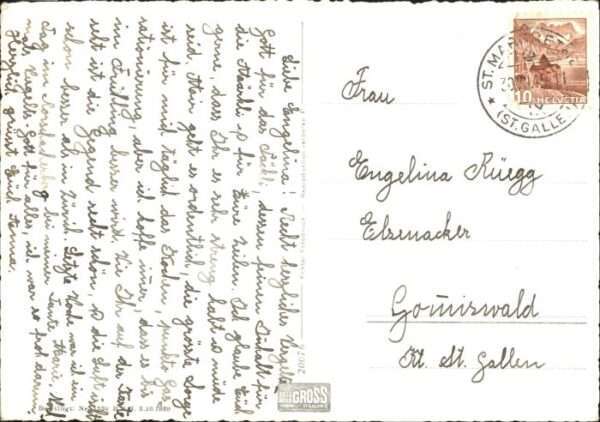 Liebe Engelina! Recht herzliches Vergelt's
Gott für das Säckli, dessen feinen Inhalt für
die u. für Eure Zeilen. Ich glaube Euch
gerne, dass Ihr es sehr streng habt u. müde
seid. geht es ordentlich, die grösste Sorge
ist für mich täglich das Kochen, punkto
aber ich hoffe immer, dass es bis
im Frühling besser wird. Wie Ihr auf der Karte
seht ist die Gegend recht schön, u. die Luft ist
schon besser als in Zürich. Letzte Woche war ich ein
Tag in bei meiner Tante Marie. Noch
mals Vergelts Gott für alles, ich war so froh darum.
Herzlich grüsst Euch Anna.
Frau
Engelina Rüegg
Elzenacker
Gommiswald
Kt. St. Gallen
ST. MARG
(ST. GALLEN)
10 HELVETIA
GROSS